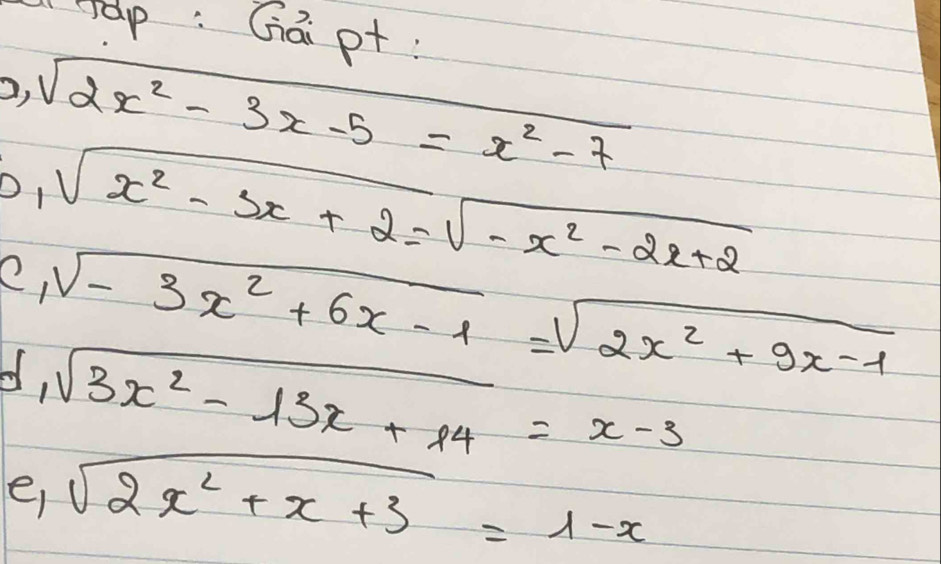 tập : Giải pt :
a, √(2x² - 3x - 5) = x² - 7
b, √(x² - 3x + 2) = √(-x² - 2x + 2)
c, √(-3x² + 6x - 1) = √(2x² + 9x - 1)
d, √(3x² - 13x + 14) = x - 3
e, √(2x² + x + 3) = 1 - x